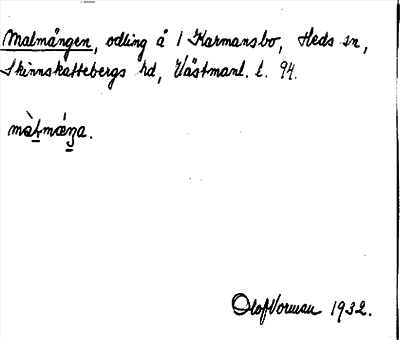 Malmängen, odling å 1 Karmansbo, Heds sn,
Skinnskattebergs hd, Västmanl. l. 94.
màḷmǽŋa.
Olof Vorman 1932.